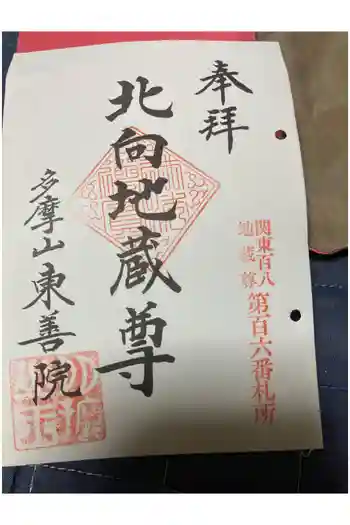 奉拝
関東百八
地蔵尊
第百六番札所
北向地蔵尊
多摩山東善院